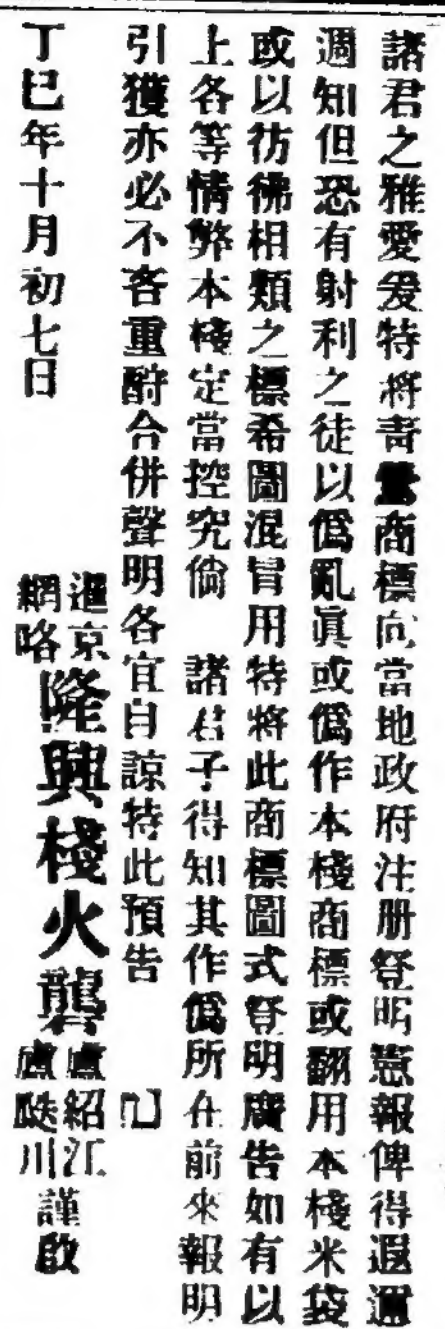 諸君之雅愛爰特將青鷥商標向當地政府注册登明憲報俾得遐邇
週知但恐有射利之徒以僞亂眞或僞作本棧商標或翻用本棧米袋
或以彷彿相類之標希圖混冒用特將此商標圖式登明廣告如有以
上各等情弊本棧定當控究倘 諸君子得知其作僞所在前來報明
引獲亦必不吝重酧合併聲明各宜自諒特此預告
丁巳年十月初七日
暹京
網咯
隆興棧火礱
盧紹江
盧 川
謹啟